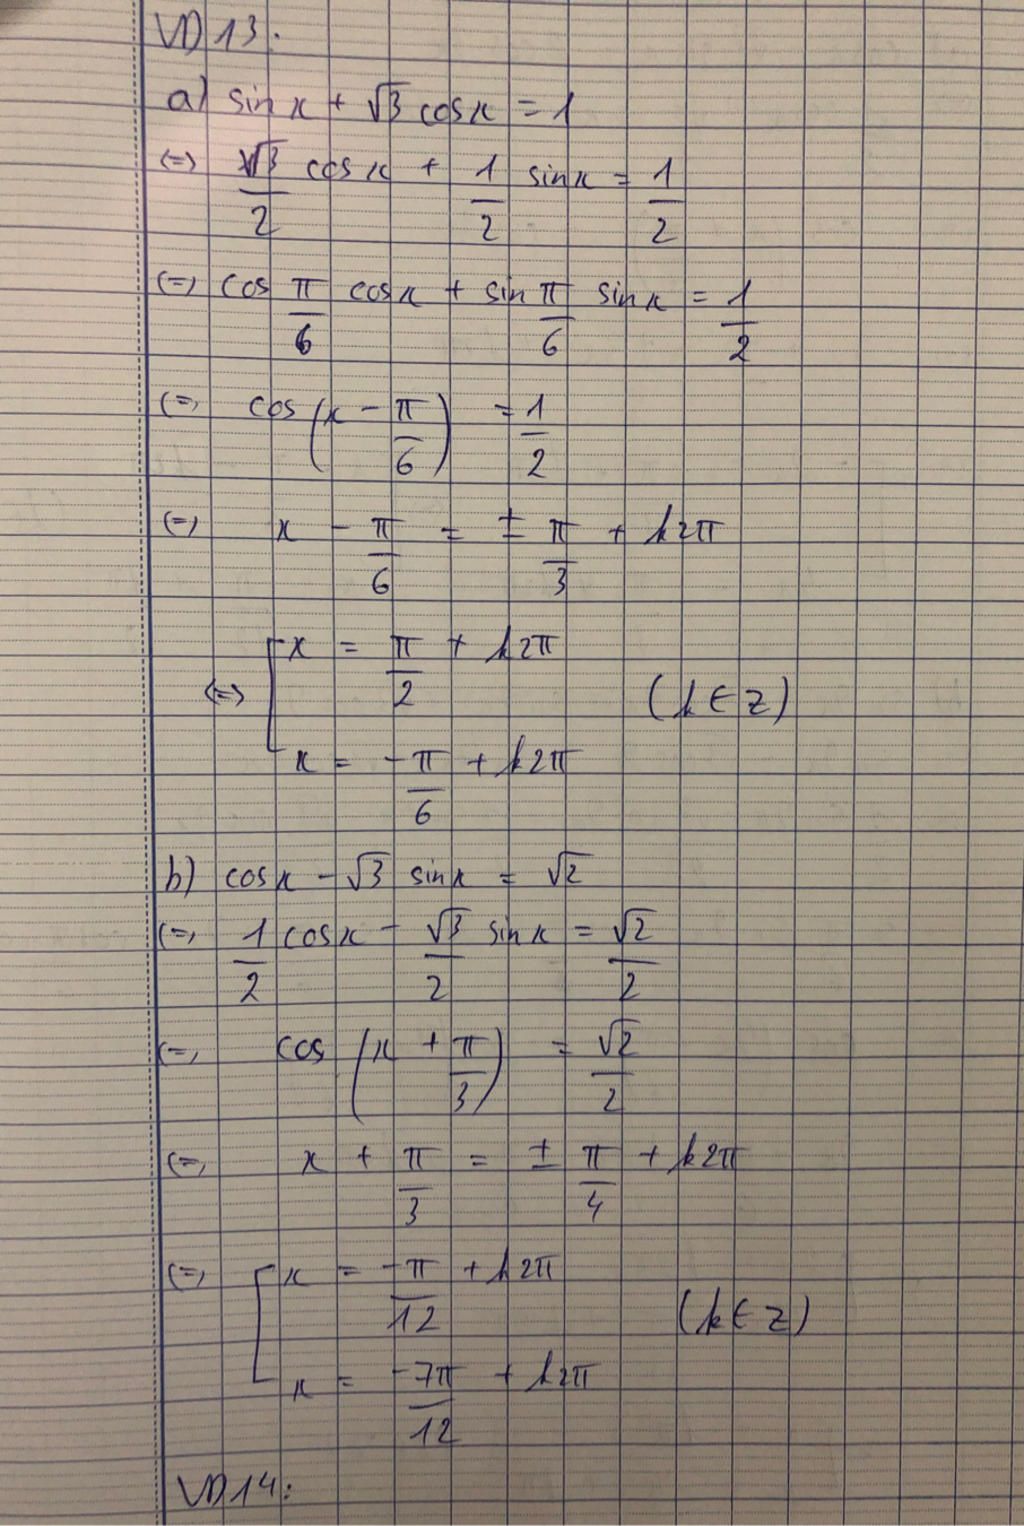 VD13:
a) sin x + √3 cos x = 1
(=) √3/2 cos x + 1/2 sin x = 1/2
(=) cos π/6 cos x + sin π/6 sin x = 1/2
(=) cos (x - π/6) = 1/2
(=) x - π/6 = ± π/3 + k2π
(=) [ x = π/2 + k2π
(k ∈ Z)
x = -π/6 + k2π
b) cos x - √3 sin x = √2
(=) 1/2 cos x - √3/2 sin x = √2/2
(=) cos (x + π/3) = √2/2
(=) x + π/3 = ± π/4 + k2π
(=) [ x = -π/12 + k2π
(k ∈ Z)
x = -7π/12 + k2π
VD14: